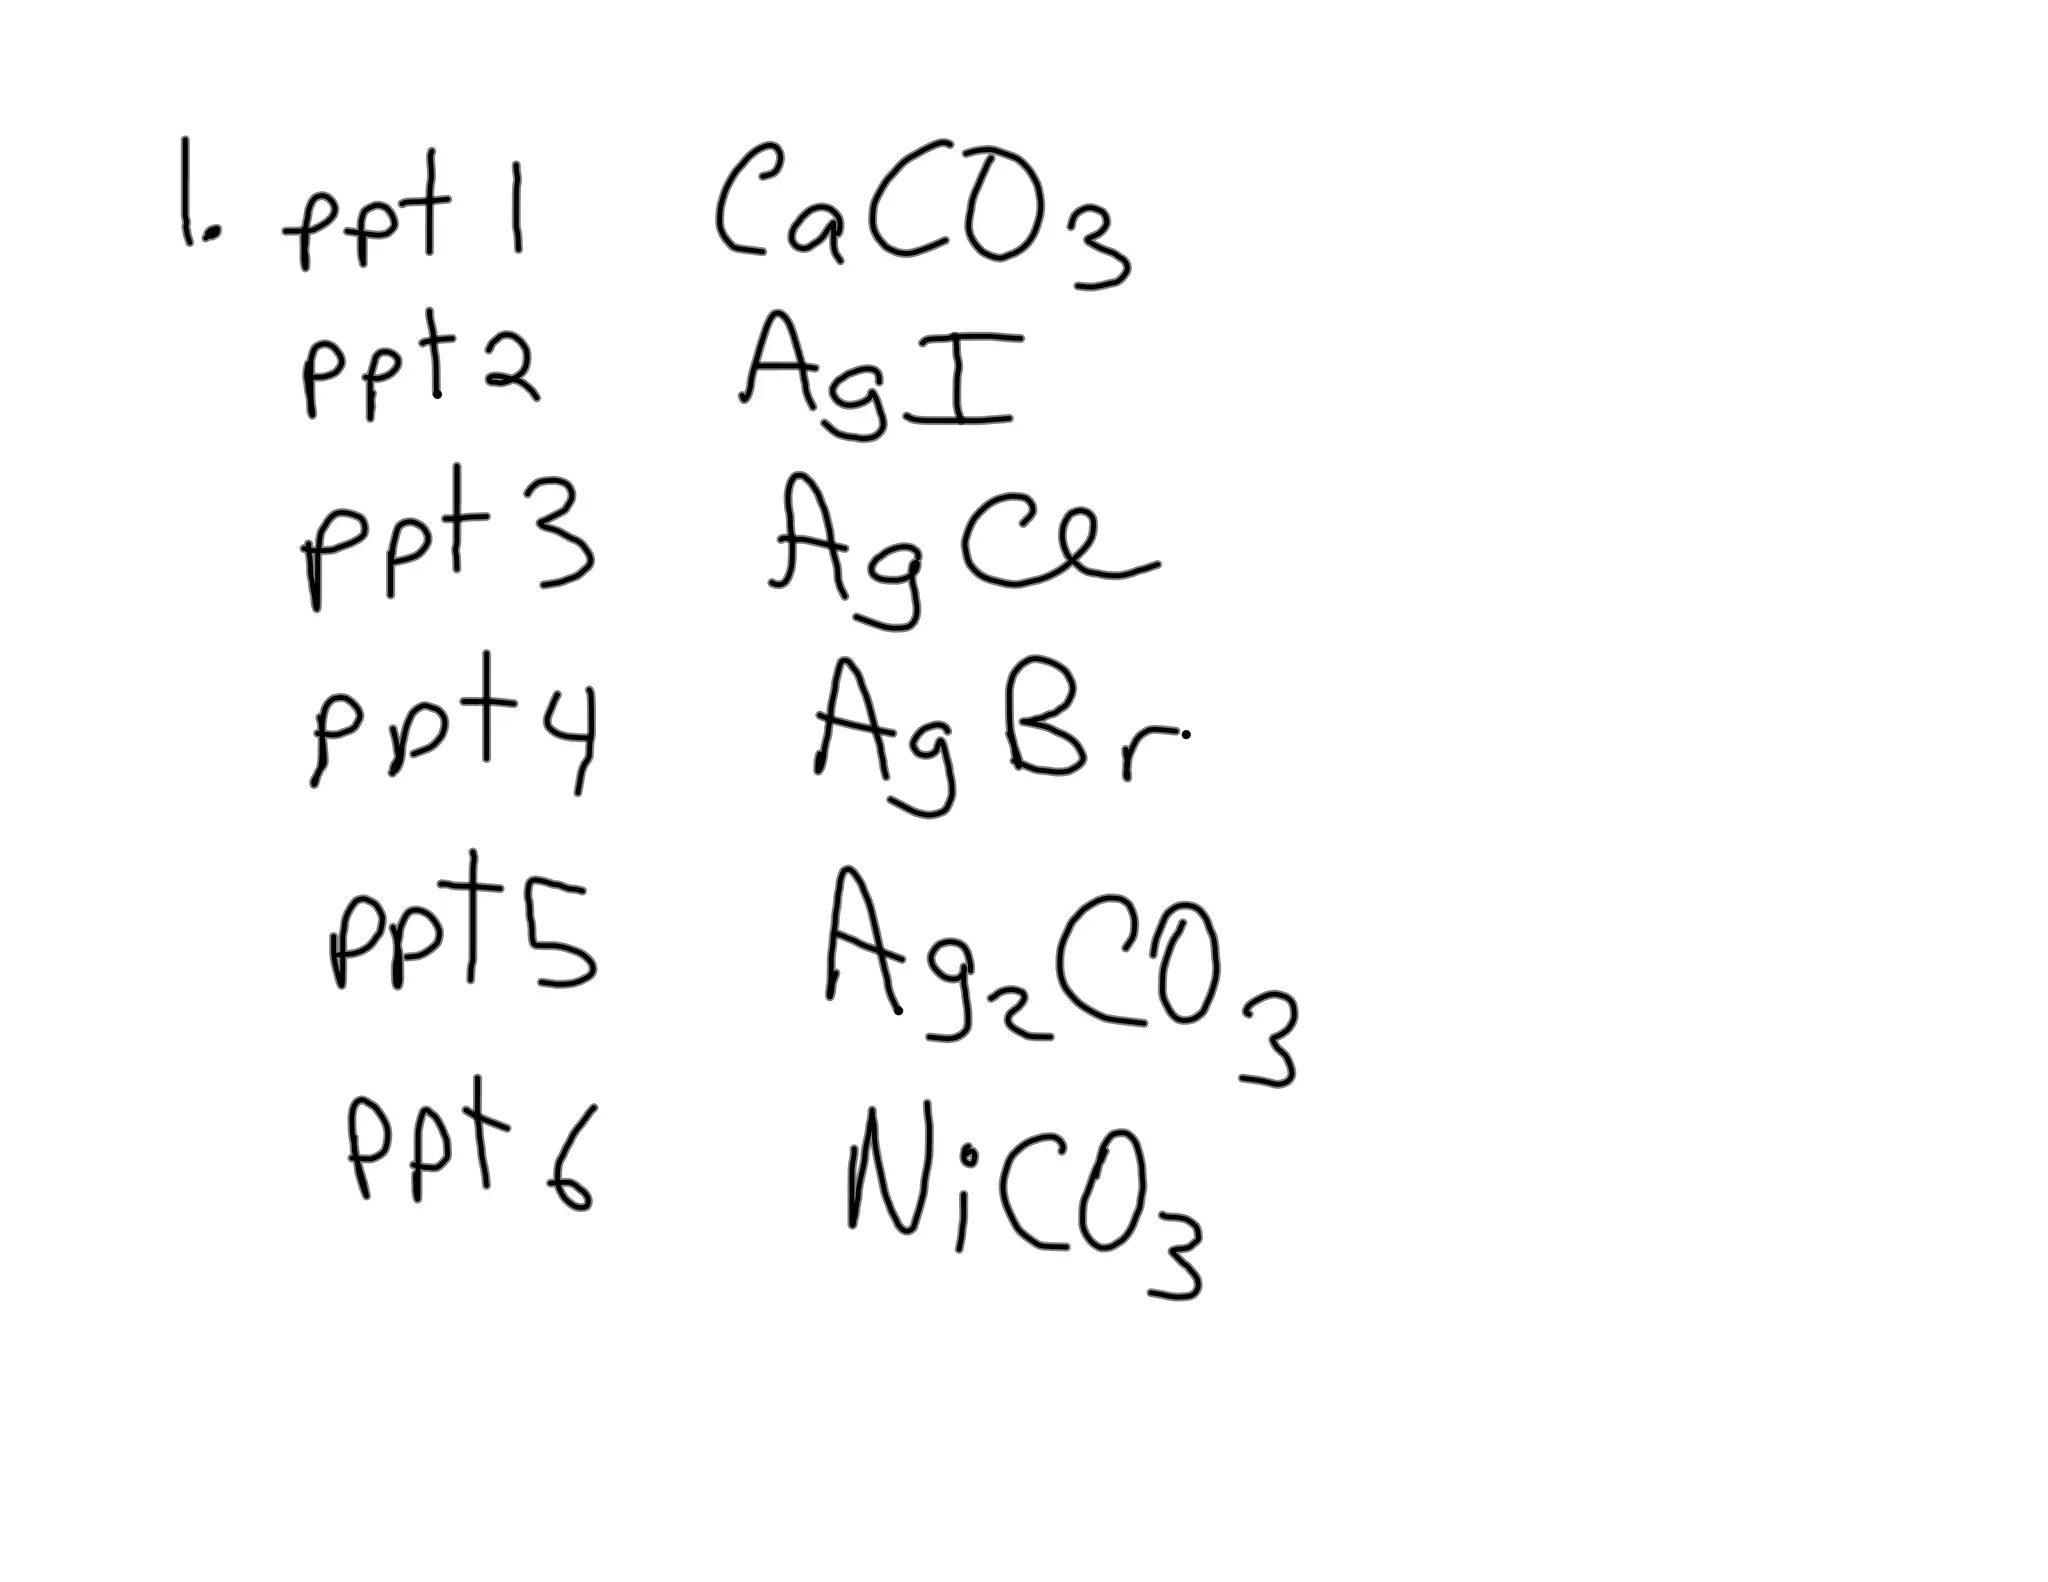 1. ppt 1 CaCO3
ppt 2 AgI
ppt 3 AgCl
ppt 4 AgBr
ppt 5 Ag2CO3
ppt 6 NiCO3